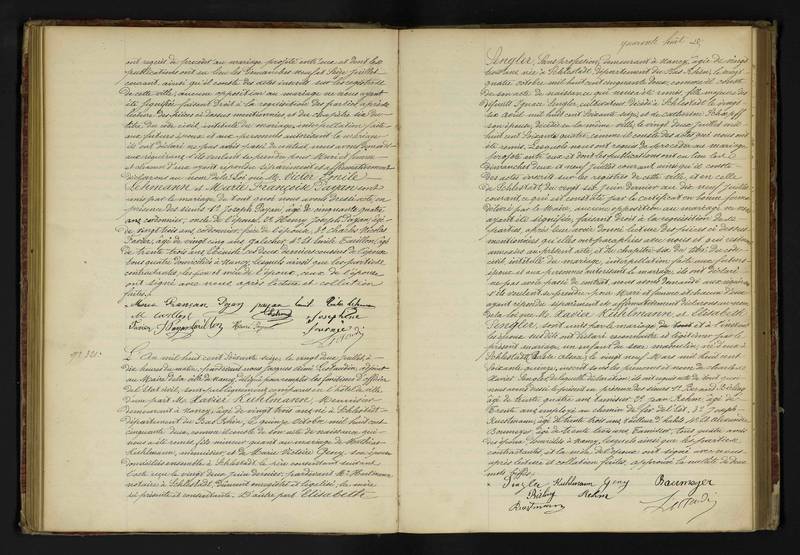 ont requis de procéder au mariage projeté entre eux et dont les
publications ont eu lieu les dimanches neuf et seize juillet
courant, ainsi qu'il conste des actes inscrits sur les registres
de cette ville; aucune opposition au mariage ne nous ayant
été signifiée, faisant droit à la réquisition des parties, après
lecture des pièces ci dessus mentionnées et du chapitre six du
titre du code civil, intitulé du mariage, interpellation faite
aux futurs époux et aux personnes autorisant le mariage
ils ont déclaré ne pas avoir passé de contrat, nous avons demandé
aux requérans s'ils veulent se prendre pour Mari et femme
et chacun d'eux ayant répondu séparément et affirmativement
déclarons au nom de la Loi que M. Victor Emile
Lehmann et Marie Françoise Payan sont
unis par le mariage, de tout quoi nous avons dressé acte, en
présence des sieurs 1° Joseph Payan, âgé de cinquante quatre
ans, cordonnier, oncle de l'épouse, 2° Henry Joseph Payan, âgé
de vingt trois ans, cordonnier, frère de l'épouse, 3° Charles Nicolas
âgé de vingt cinq ans, 4° Emile
de trente trois ans, ces deux derniers cousins de l'épouse
tous quatre domiciliés à Nancy, lesquels ainsi que les parties
contractantes, les père et mère de l'époux, ceux de l'épouse
ont signé avec nous après lecture et collation
faites.
Marie Françoise Payan payan Emile Victor Lehmann
Josephine
Henri Payan
N° 321.
L'An mil huit cent soixante seize, le vingt deux juillet à
dix heures du matin, pardevant nous Jacques adjoint
au Maire de la ville de Nancy, délégué pour remplir les fonctions d'officier
de l'état civil, sont publiquement comparus à l'hôtel de ville
d'une part M. Xavier Kuhlmann, Menuisier
demeurant à Nancy, âgé de vingt trois ans, né à Schlestadt
département du Bas Rhin, le quinze octobre mil huit cent
cinquante deux, comme il conste de son acte de naissance qui
nous a été remis, fils mineur quant au mariage de Mathias
Kuhlmann, menuisier, et de Marie Victoire Geny, son épouse
domiciliés ensemble à Schlestadt, le père consentant suivant
acte reçu le vingt deux juin dernier, pardevant Me
notaire à Schlestadt, dûment enregistré et légalisé, la mère
ici présente et consentante. D'autre part Elisabeth
quarante huit
Sengler, sans profession, demeurant à Nancy, âgée de vingt
trois ans, née à Schlestadt, département du Bas Rhin, le vingt
quatre octobre mil huit cent cinquante deux, comme il conste
de son acte de naissance qui nous a été remis, fille majeure des
défunts Ignace Sengler, cultivateur, décédé à Schlestadt le vingt
six août mil huit cent soixante sept, et Catherine
son épouse, décédée en la même ville, le vingt deux juillet mil
huit cent soixante quatre, comme il conste des actes qui nous ont
été remis. Lesquels nous ont requis de procéder au mariage
projeté entre eux et dont les publications ont eu lieu les
dimanches deux et neuf juillet courant ainsi qu'il conste
des actes inscrits sur les registres de cette ville, et en celle
de Schlestadt, du vingt six juin dernier au dix neuf juillet
courant, ce qui est constaté par le certificat en bonne forme
délivré par le Maire, aucune opposition au mariage ne nous
ayant été signifiée, faisant droit à la réquisition des
parties, après leur avoir donné lecture des pièces ci dessus
mentionnées qui elles ont paraphées avec nous et qui resteront
annexées au présent acte, et du chapitre six du titre du code
civil intitulé du mariage, interpellation faite aux futurs
époux et aux personnes autorisant le mariage, ils ont déclaré
ne pas avoir passé de contrat, nous avons demandé aux requérans
s'ils veulent se prendre pour Mari et femme et chacun d'eux
ayant répondu séparément et affirmativement déclarons au nom
de la Loi que M. Xavier Kuhlmann et Elisabeth
Sengler, sont unis par le mariage, et à l'instant
les époux ont dit et déclaré reconnaître et légitimer par le
présent mariage un enfant du sexe masculin, né d'eux à
Schlestadt, Alsace, le vingt neuf Mars mil huit cent
soixante quinze, inscrit sous les prénoms et nom de Charles
Xavier Sengler, de laquelle déclaration ils ont requis acte, de tout
nous avons dressé le présent en présence des sieurs 1° Bernard
âgé de trente quatre ans, 2° Jean Rehm, âgé de
trente ans, employé au chemin de fer de l'Est, 3° Joseph
âgé de trente trois ans, tailleur d'habits, 4° Alexandre
Baumeyer, âgé de trente trois ans, tous quatre amis
des époux, domiciliés à Nancy, lesquels ainsi que les parties
contractantes, et la mère de l'époux ont signé avec nous
après lecture et collation faites, approuvé la nullité de deux
mots biffés.
Sengler Kuhlmann Geny Baumeyer
Rehm